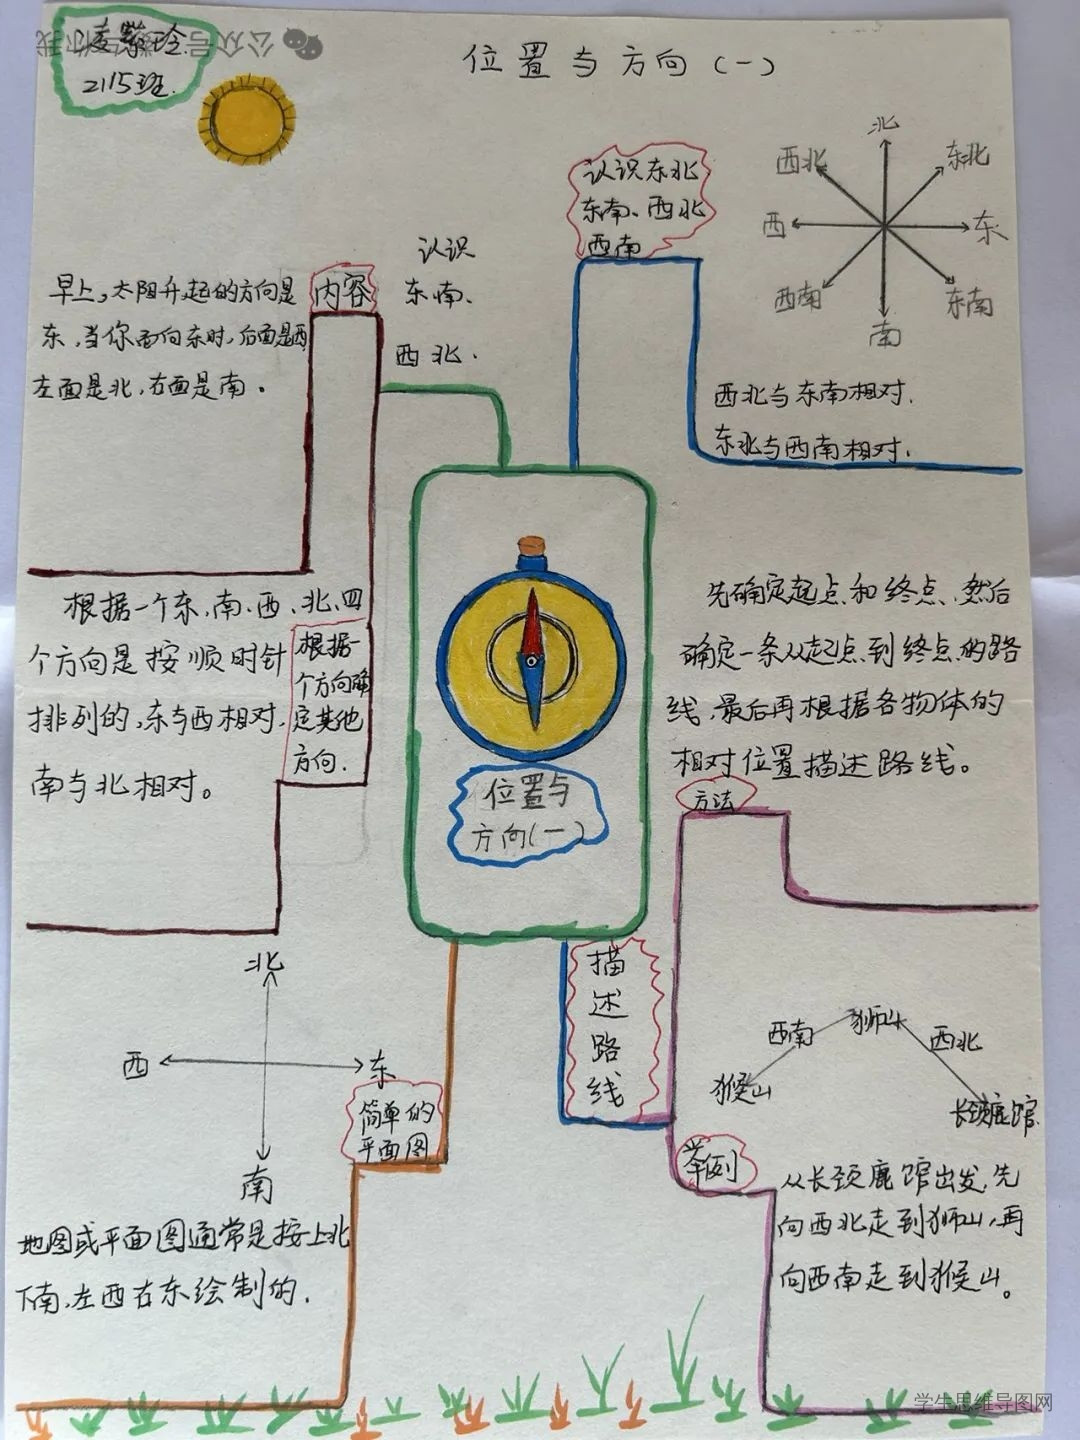 2115班.
位置与方向(一)
北
西北
东北
西
东
西南
东南
南
认识东北
东南、西北
西南
西北与东南相对.
东北与西南相对.
认识
东南、
西北.
内容
早上,太阳升起的方向是
东,当你面向东时,后面是西
左面是北,右面是南。
根据一个东、南、西、北、四
个方向是按顺时针
排列的,东与西相对,
南与北相对。
根据一
个方向确
定其他
方向.
位置与
方向(一)
先确定起点和终点,然后
确定一条从起点到终点的路
线,最后再根据各物体的
相对位置描述路线。
方法
描
述
路
线
北
西
东
南
简单的
平面图
地图或平面图通常是按上北
下南、左西右东绘制的.
狮山
西南
西北
猴山
长颈鹿馆
举例
从长颈鹿馆出发,先
向西北走到狮山,再
向西南走到猴山。
学生思维导图网